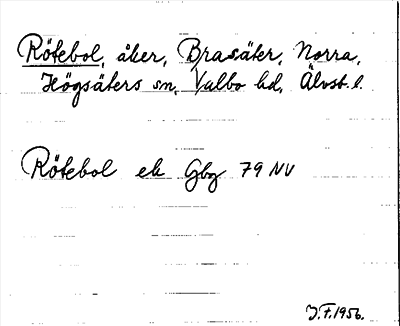 Rötebol, åker, Brasäter, Norra,
Högsäters sn, Valbo hd, Älvsb. l.
Rötebol ek Gbg 79 NV
J.F. 1956.